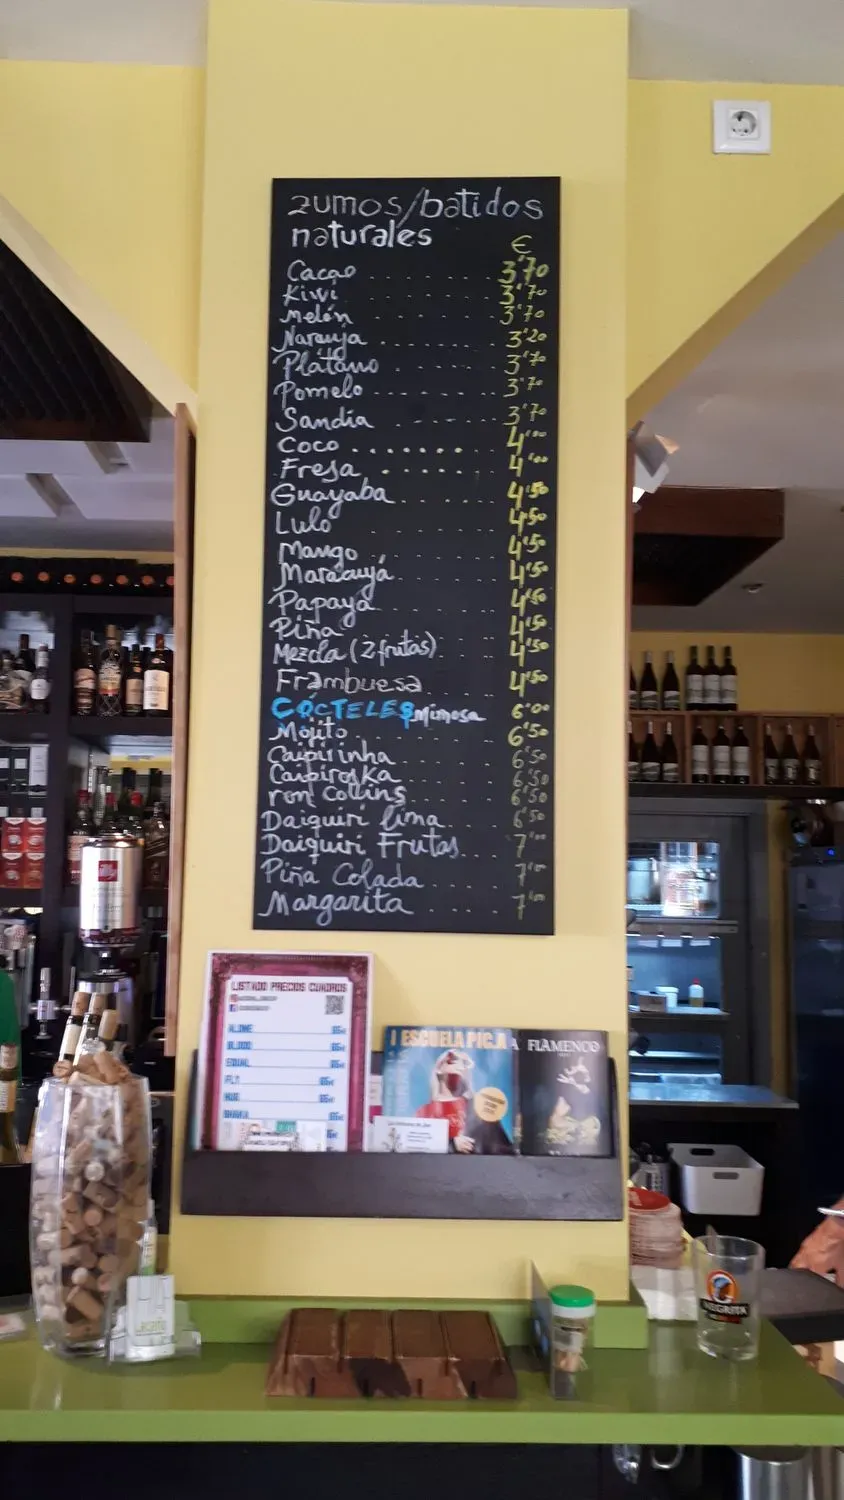 zumos/batidos
naturales
€
Cacao ........ 3'70
Kiwi ........ 3'70
Melón ........ 3'70
Naranja ........ 3'20
Plátano ...... 3'70
Pomelo ........ 3'70
Sandía ...... 3'70
Coco ....... 4'00
Fresa ...... 4'00
Guayaba ...... 4'50
Lulo ...... 4'50
Mango ...... 4'50
Maracuyá ...... 4'50
Papaya ...... 4'50
Piña ...... 4'50
Mezcla (2 frutas) .. 4'50
Frambuesa ..... 4'50
CÓCTELES, Mimosa 6'00
Mojito ...... 6'50
Caipirinha ..... 6'50
Caipiroska ..... 6'50
ron Collins ..... 6'50
Daiquiri lima .... 6'50
Daiquiri Frutas ... 7'00
Piña Colada .... 7'00
Margarita .... 7'00
LISTADO PRECIOS CUADROS
ALONE 65€
BLOOD 65€
EQUAL 65€
FLY 65€
HUG 65€
I ESCUELA PIC.A
A FLAMENCO
illy
NEGRITA